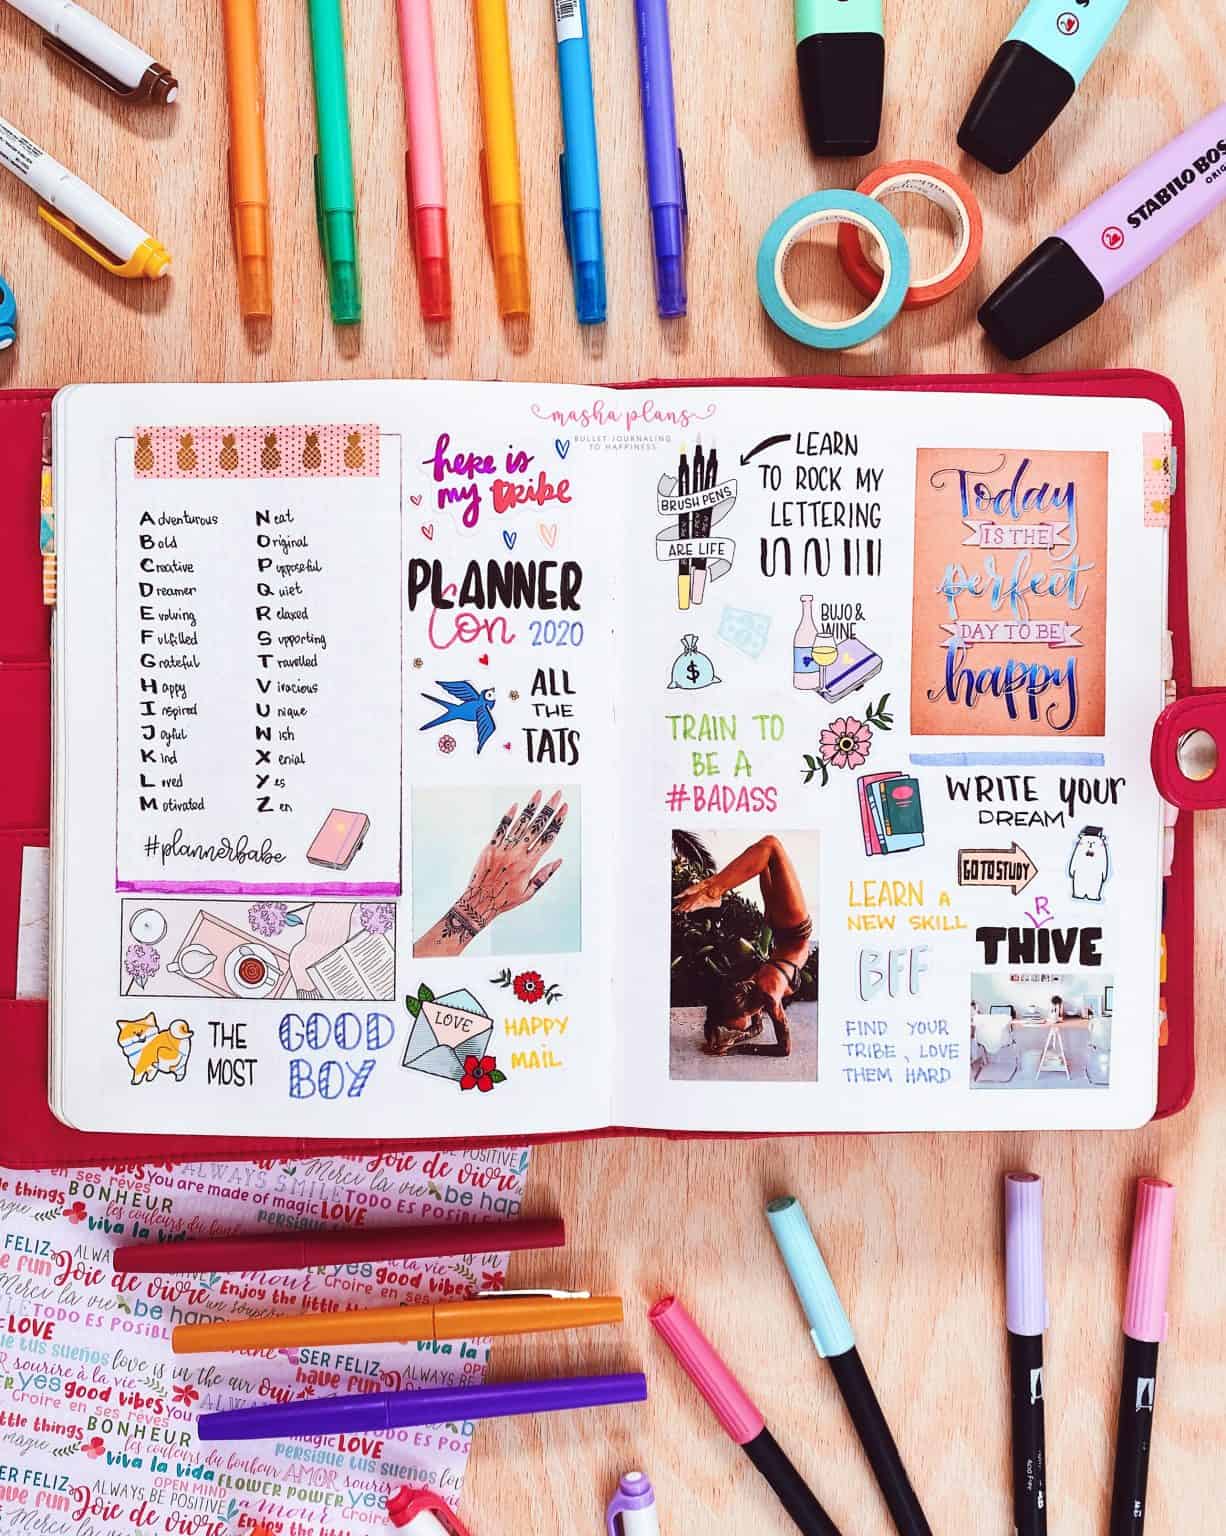 STABILO BOS
ORIG
masha plans
BULLET JOURNALING
TO HAPPINESS
Adventurous
Bold
Creative
Dreamer
Evolving
Fulfilled
Grateful
Happy
Inspired
Joyful
Kind
Loved
Motivated
Neat
Original
Purposeful
Quiet
Relaxed
Supporting
Travelled
Vivacious
Unique
Wish
Xenial
Yes
Zen
#plannerbabe
THE
MOST
GOOD
BOY
here is
my tribe
PLANNER
Con 2020
ALL
THE
TATS
LOVE
HAPPY
MAIL
BRUSH PENS
ARE LIFE
LEARN
TO ROCK MY
LETTERING
$
BUJO &
WINE
TRAIN TO
BE A
#BADASS
Today
IS THE
perfect
DAY TO BE
happy
WRITE your
DREAM
GO TO STUDY
LEARN A
NEW SKILL
BFF
FIND YOUR
TRIBE, LOVE
THEM HARD
R
THIVE
Joie de vivre
BE POSITIVE
ALWAYS SMILE
Merci la vie
be hap
en ses rêves
You are made of magic
LOVE
TODO ES POSIBLE
BONHEUR
les couleurs du bonheur
persigue
viva la vida
FELIZ
Joie de vivre
Croire en
good vibes
Enjoy the little th
Merci la vie
be happ
TODO ES POSIBL
LOVE
tus sueños
love is in the air
oui
SER FELIZ
have fun
ALWAYS BE POSITIVE
sourire à la vie
yes
good vibes
Croire en ses rêves
little things
BONHEUR
magic LOVE
TODO ES POS
magie
les couleurs du bonheur
persigue tus sueños
viva la vida
AMOR
SER FELIZ
OPEN MIND
FLOWER POWER
yes
ALWAYS BE POSITIVE
have fun
Joie de vivre
amour
Enjoy the little